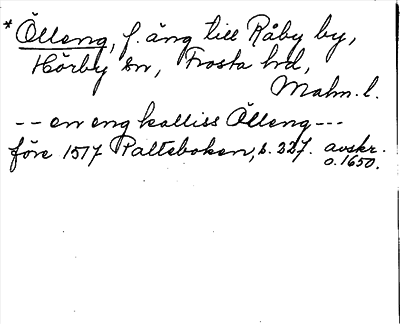 * Ölleng, f. äng till Råby by,
Hörby sn, Frosta hd,
Malm. l.
-- en eng kalliss Ölleng ---
före 1517 Palteboken, s. 327. avskr.
o. 1650.